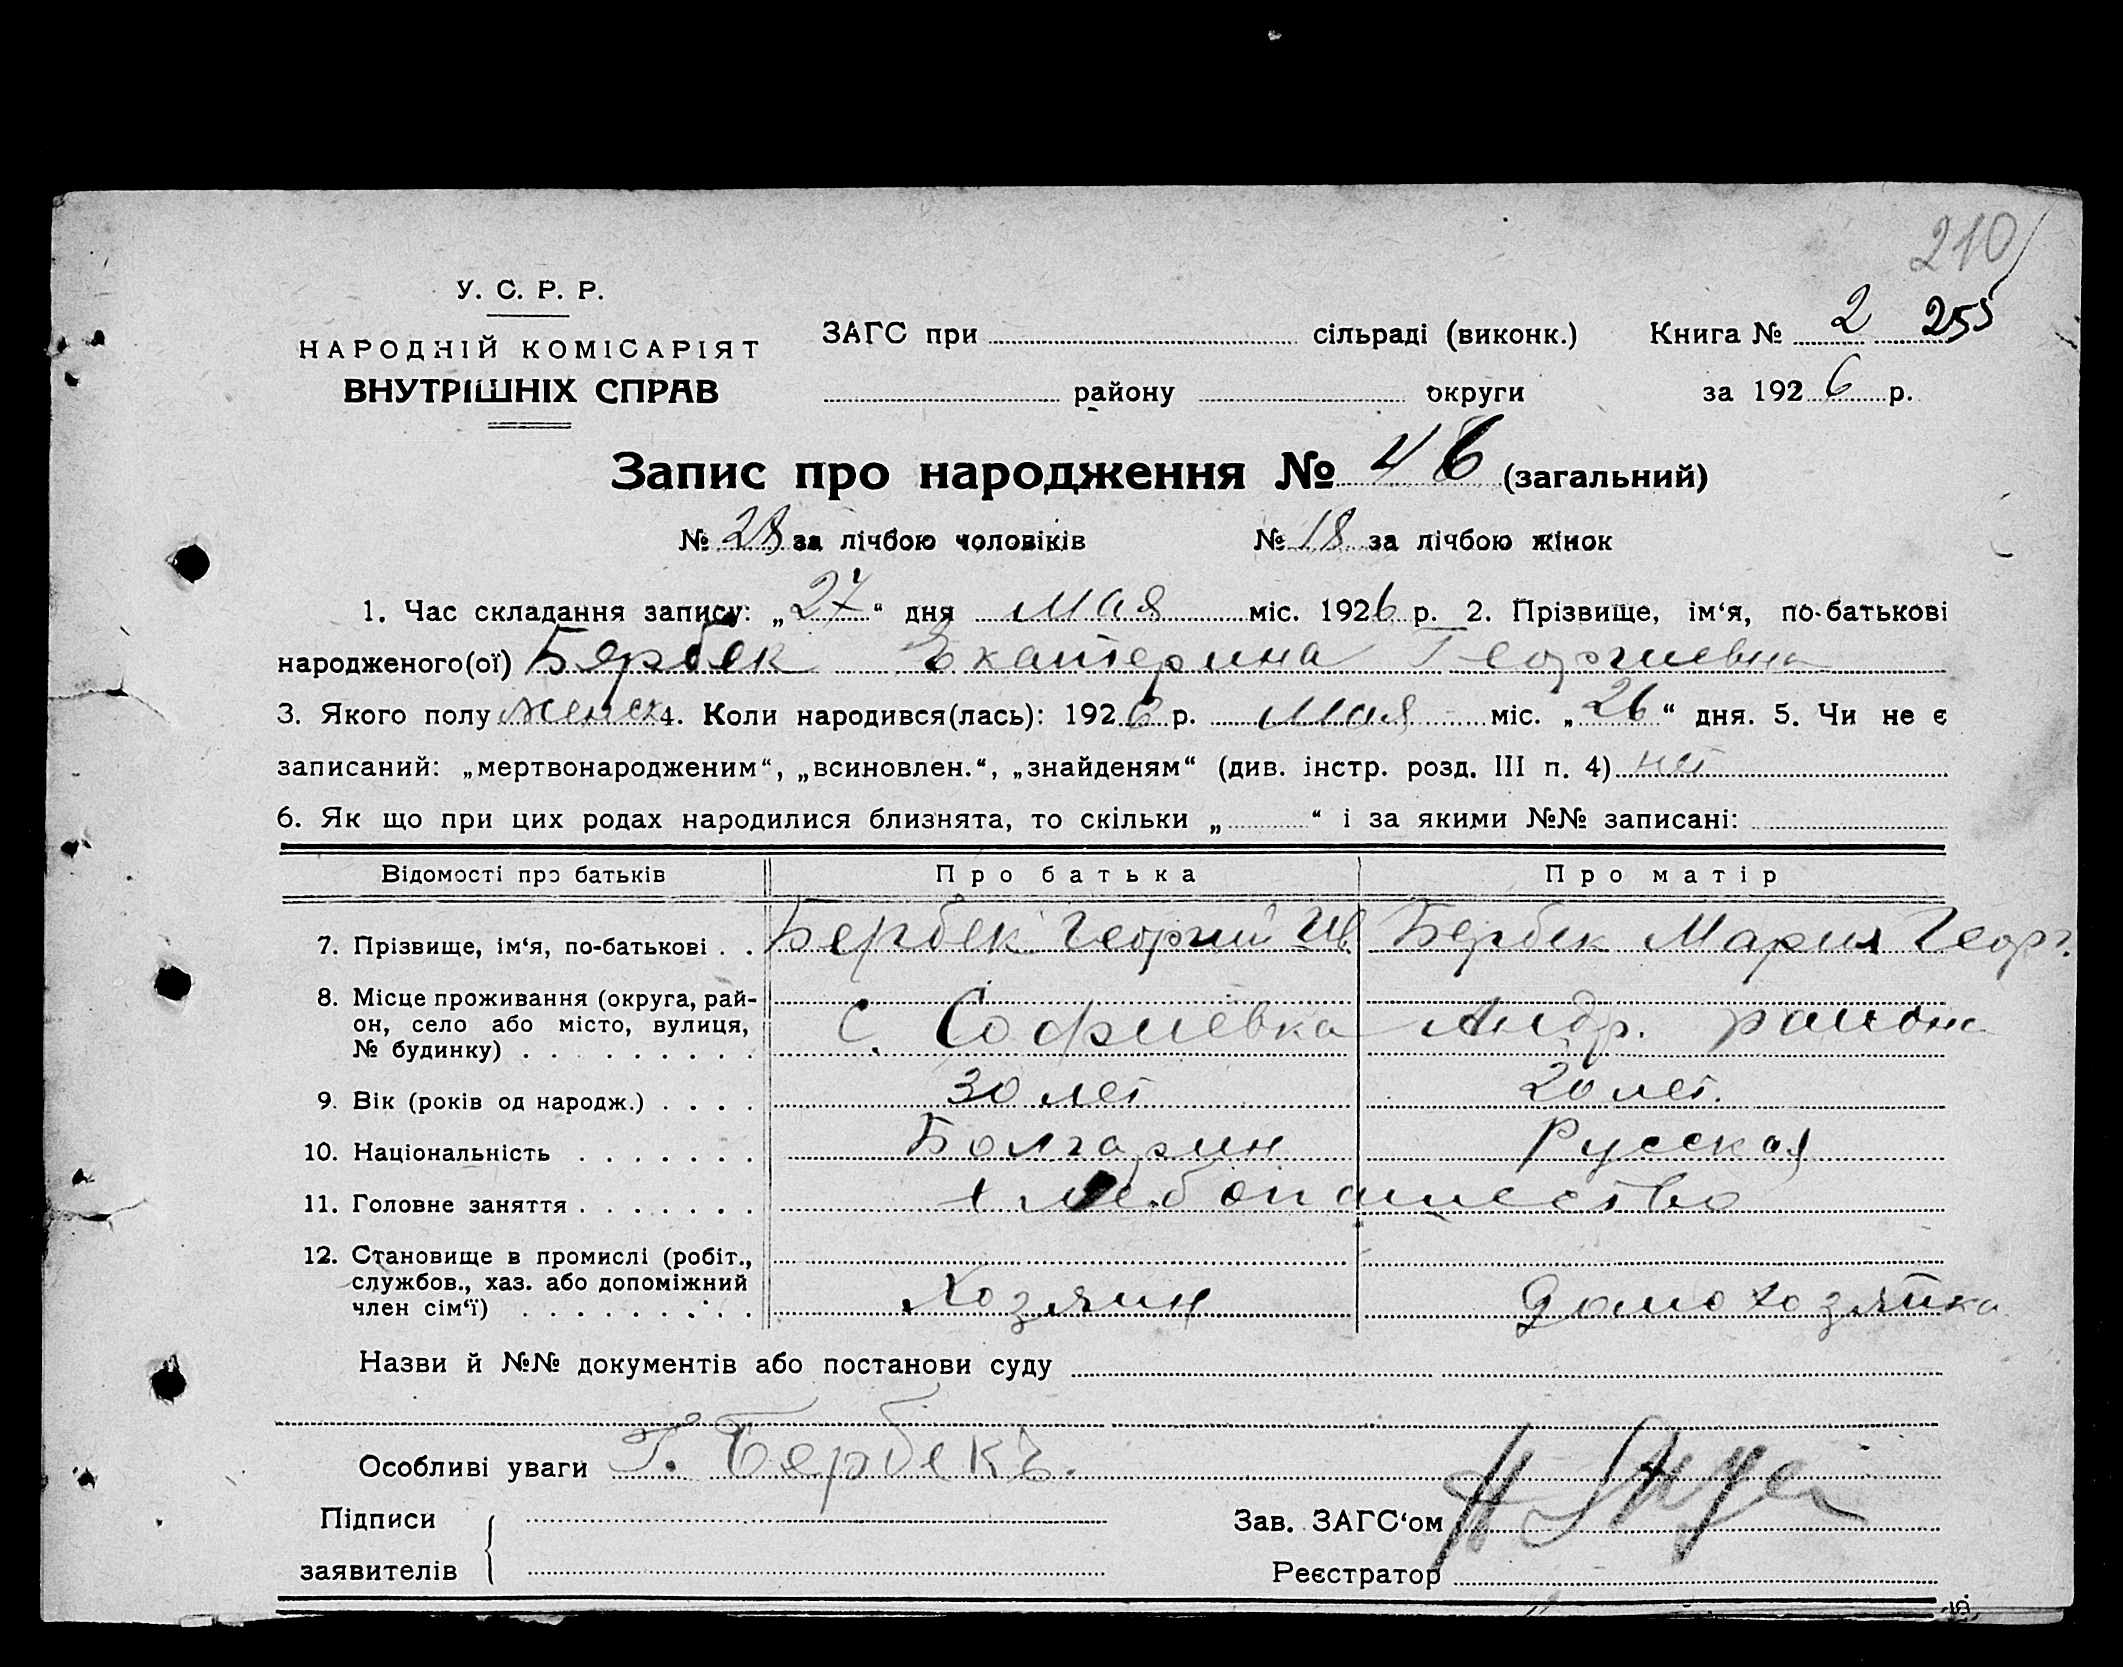 210
У. С. Р. Р.
НАРОДНІЙ КОМІСАРІЯТ
ВНУТРІШНІХ СПРАВ
ЗАГС при сільраді (виконк.) Книга № 2 255
району округи за 1926 р.
Запис про народження № 46 (загальний)
№ 28 за лічбою чоловіків № 18 за лічбою жінок
1. Час складання запису: „27“ дня мая міс. 1926 р. 2. Прізвище, ім‘я, по-батькові
народженого(ої) Бербек Екатерина Георгиевна
3. Якого полу женск 4. Коли народився(лась): 1926 р. Мая міс. „26“ дня. 5. Чи не є
записаний: „мертвонародженим“, „всиновлен.“, „знайденям“ (див. інстр. розд. III п. 4) нет
6. Як що при цих родах народилися близнята, то скільки „ “ і за якими №№ записані:
Відомості про батьків Про батька Про матір
7. Прізвище, ім‘я, по-батькові . . Бербек Георгий Ив Бербек Мария Георг.
8. Місце проживання (округа, рай-
он, село або місто, вулиця, с. Софиевка Андр. района
№ будинку) . . . . . . . . .
9. Вік (років од народж.) . . . . 30 лет 20 лет.
10. Національність . . . . . . . Болгарин Русская
11. Головне заняття . . . . . . . Хлебопашество
12. Становище в промислі (робіт.,
службов., хаз. або допоміжний
член сім‘ї) . . . . . . . . . Хозяин Домохозяйка
Назви й №№ документів або постанови суду
Особливі уваги Г. Бербекъ.
Підписи Зав. ЗАГС‘ом
заявителів Реєстратор